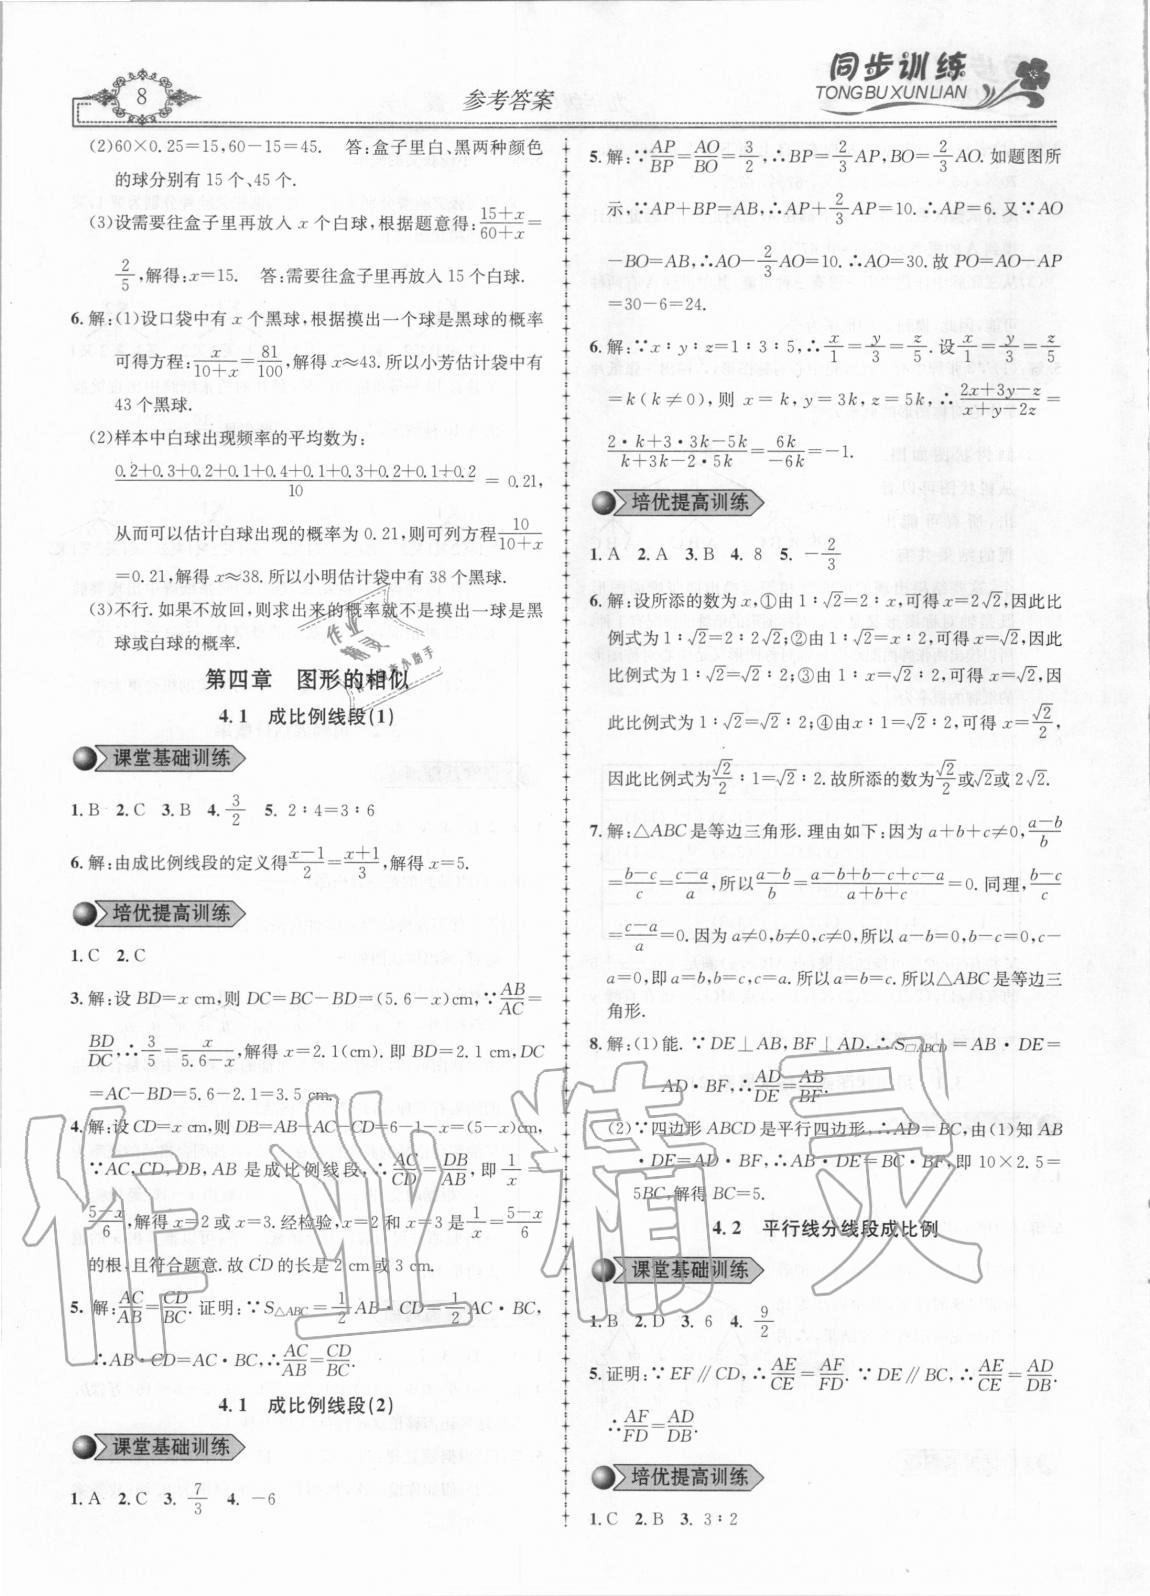 8
参考答案
同步训练
TONG BU XUN LIAN
(2)60×0.25=15,60−15=45. 答:盒子里白、黑两种颜色
的球分别有 15 个、45 个.
(3)设需要往盒子里再放入 x 个白球,根据题意得:(15+x)/(60+x)=
2/5,解得:x=15. 答:需要往盒子里再放入 15 个白球.
6.解:(1)设口袋中有 x 个黑球,根据摸出一个球是黑球的概率
可得方程:x/(10+x)=81/100,解得 x≈43.所以小芳估计袋中有
43 个黑球.
(2)样本中白球出现频率的平均数为:
(0.2+0.3+0.2+0.1+0.4+0.1+0.3+0.2+0.1+0.2)/10=0.21,
从而可以估计白球出现的概率为 0.21,则可列方程10/(10+x)
=0.21,解得 x≈38.所以小明估计袋中有 38 个黑球.
(3)不行.如果不放回,则求出来的概率就不是摸出一球是黑
球或白球的概率.
第四章 图形的相似
4.1 成比例线段(1)
课堂基础训练
1.B 2.C 3.B 4.3/2 5. 2∶4=3∶6
6.解:由成比例线段的定义得(x−1)/2=(x+1)/3,解得 x=5.
培优提高训练
1.C 2.C
3.解:设 BD=x cm,则 DC=BC−BD=(5.6−x)cm,∵AB/AC=
BD/DC,∴3/5=x/(5.6−x),解得 x=2.1(cm).即 BD=2.1 cm,DC
=AC−BD=5.6−2.1=3.5 cm.
4.解:设 CD=x cm,则 DB=AB−AC−CD=6−1−x=(5−x)cm,
∵AC,CD,DB,AB 是成比例线段,∴AC/CD=DB/AB,即1/x=
(5−x)/6,解得 x=2 或 x=3.经检验,x=2 和 x=3 是1/x=(5−x)/6
的根.且符合题意.故 CD 的长是 2 cm 或 3 cm.
5.解:AC/AB=CD/BC.证明:∵S△ABC=1/2AB·CD=1/2AC·BC,
∴AB·CD=AC·BC,∴AC/AB=CD/BC.
4.1 成比例线段(2)
课堂基础训练
1.A 2.C 3.7/3 4.−6
5.解:∵AP/BP=AO/BO=3/2,∴BP=2/3AP,BO=2/3AO.如题图所
示,∵AP+BP=AB,∴AP+2/3AP=10.∴AP=6.又∵AO
−BO=AB,∴AO−2/3AO=10.∴AO=30.故 PO=AO−AP
=30−6=24.
6.解:∵x∶y∶z=1∶3∶5,∴x/1=y/3=z/5.设x/1=y/3=z/5
=k(k≠0),则 x=k,y=3k,z=5k,∴(2x+3y−z)/(x+y−2z)=
(2·k+3·3k−5k)/(k+3k−2·5k)=6k/−6k=−1.
培优提高训练
1.A 2.A 3.B 4.8 5.−2/3
6.解:设所添的数为 x,①由 1∶√2=2∶x,可得 x=2√2,因此比
例式为 1∶√2=2∶2√2;②由 1∶√2=x∶2,可得 x=√2,因此
比例式为 1∶√2=√2∶2;③由 1∶x=√2∶2,可得 x=√2,因
此比例式为 1∶√2=√2∶2;④由 x∶1=√2∶2,可得 x=√2/2,
因此比例式为√2/2∶1=√2∶2.故所添的数为√2/2或√2或 2√2.
7.解:△ABC 是等边三角形.理由如下:因为 a+b+c≠0,(a−b)/b
=(b−c)/c=(c−a)/a,所以(a−b)/b=(a−b+b−c+c−a)/(a+b+c)=0.同理,(b−c)/c
=(c−a)/a=0.因为 a≠0,b≠0,c≠0,所以 a−b=0,b−c=0,c−
a=0,即 a=b,b=c,c=a.所以 a=b=c.所以△ABC 是等边三
角形.
8.解:(1)能.∵DE⊥AB,BF⊥AD,∴S▱ABCD=AB·DE=
AD·BF,∴AD/DE=AB/BF.
(2)∵四边形 ABCD 是平行四边形,∴AD=BC,由(1)知 AB
·DE=AD·BF,∴AB·DE=BC·BF,即 10×2.5=
5BC,解得 BC=5.
4.2 平行线分线段成比例
课堂基础训练
1.B 2.D 3.6 4.9/2
5.证明:∵EF∥CD,∴AE/CE=AF/FD.∵DE∥BC,∴AE/CE=AD/DB.
∴AF/FD=AD/DB.
培优提高训练
1.C 2.B 3.3∶2
作业精灵